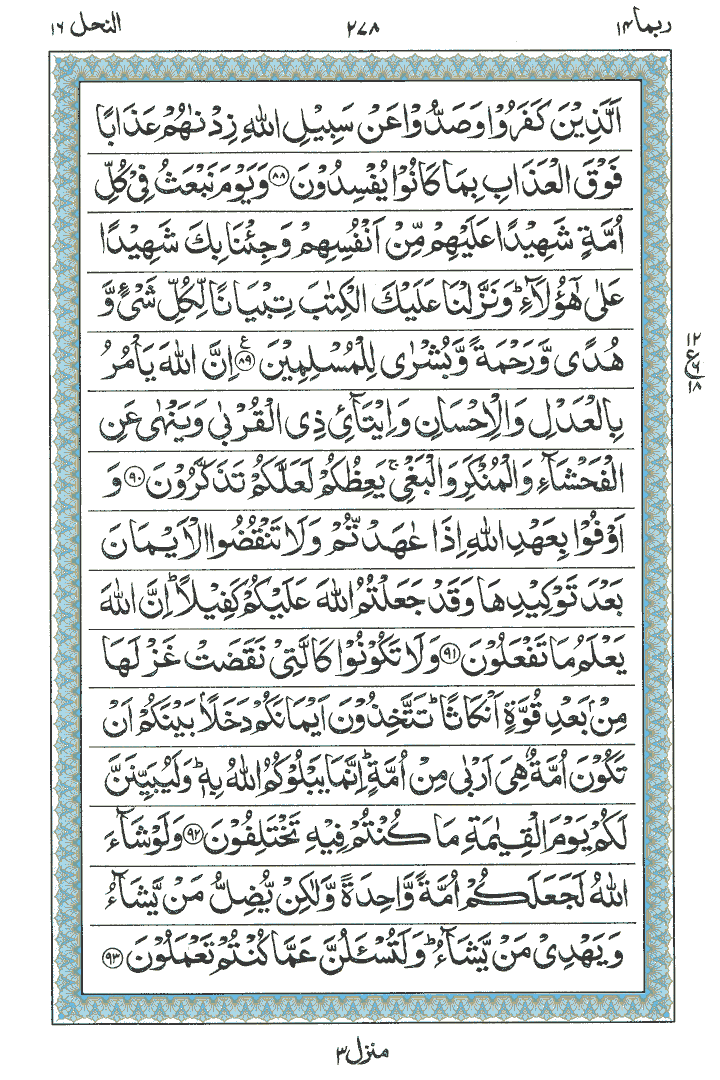 ربما ۱۴ ۲۷۸ النحل ۱۶
اَلَّذِيْنَ كَفَرُوْا وَصَدُّوْا عَنْ سَبِيْلِ اللّٰهِ زِدْنٰهُمْ عَذَابًا
فَوْقَ الْعَذَابِ بِمَا كَانُوْا يُفْسِدُوْنَ ﴿۸۸﴾ وَيَوْمَ نَبْعَثُ فِيْ كُلِّ
اُمَّةٍ شَهِيْدًا عَلَيْهِمْ مِّنْ اَنْفُسِهِمْ وَجِئْنَا بِكَ شَهِيْدًا
عَلٰى هٰٓؤُلَآءِ ؕ وَنَزَّلْنَا عَلَيْكَ الْكِتٰبَ تِبْيَانًا لِّكُلِّ شَيْءٍ وَّ
هُدًى وَّرَحْمَةً وَّبُشْرٰى لِلْمُسْلِمِيْنَ ﴿۸۹﴾ ع اِنَّ اللّٰهَ يَاْمُرُ
۱۲ ع ۶ ۱۸
بِالْعَدْلِ وَالْاِحْسَانِ وَاِيْتَآئِ ذِي الْقُرْبٰى وَيَنْهٰى عَنِ
الْفَحْشَآءِ وَالْمُنْكَرِ وَالْبَغْيِ ۚ يَعِظُكُمْ لَعَلَّكُمْ تَذَكَّرُوْنَ ﴿۹۰﴾ وَ
اَوْفُوْا بِعَهْدِ اللّٰهِ اِذَا عٰهَدْتُّمْ وَلَا تَنْقُضُوا الْاَيْمَانَ
بَعْدَ تَوْكِيْدِهَا وَقَدْ جَعَلْتُمُ اللّٰهَ عَلَيْكُمْ كَفِيْلًا ؕ اِنَّ اللّٰهَ
يَعْلَمُ مَا تَفْعَلُوْنَ ﴿۹۱﴾ وَلَا تَكُوْنُوْا كَالَّتِيْ نَقَضَتْ غَزْلَهَا
مِنْۢ بَعْدِ قُوَّةٍ اَنْكَاثًا ؕ تَتَّخِذُوْنَ اَيْمَانَكُمْ دَخَلًاۢ بَيْنَكُمْ اَنْ
تَكُوْنَ اُمَّةٌ هِيَ اَرْبٰى مِنْ اُمَّةٍ ؕ اِنَّمَا يَبْلُوْكُمُ اللّٰهُ بِهٖ ؕ وَلَيُبَيِّنَنَّ
لَكُمْ يَوْمَ الْقِيٰمَةِ مَا كُنْتُمْ فِيْهِ تَخْتَلِفُوْنَ ﴿۹۲﴾ وَلَوْ شَآءَ
اللّٰهُ لَجَعَلَكُمْ اُمَّةً وَّاحِدَةً وَّلٰكِنْ يُّضِلُّ مَنْ يَّشَآءُ
وَيَهْدِيْ مَنْ يَّشَآءُ ؕ وَلَتُسْـَٔلُنَّ عَمَّا كُنْتُمْ تَعْمَلُوْنَ ﴿۹۳﴾
منزل ۳